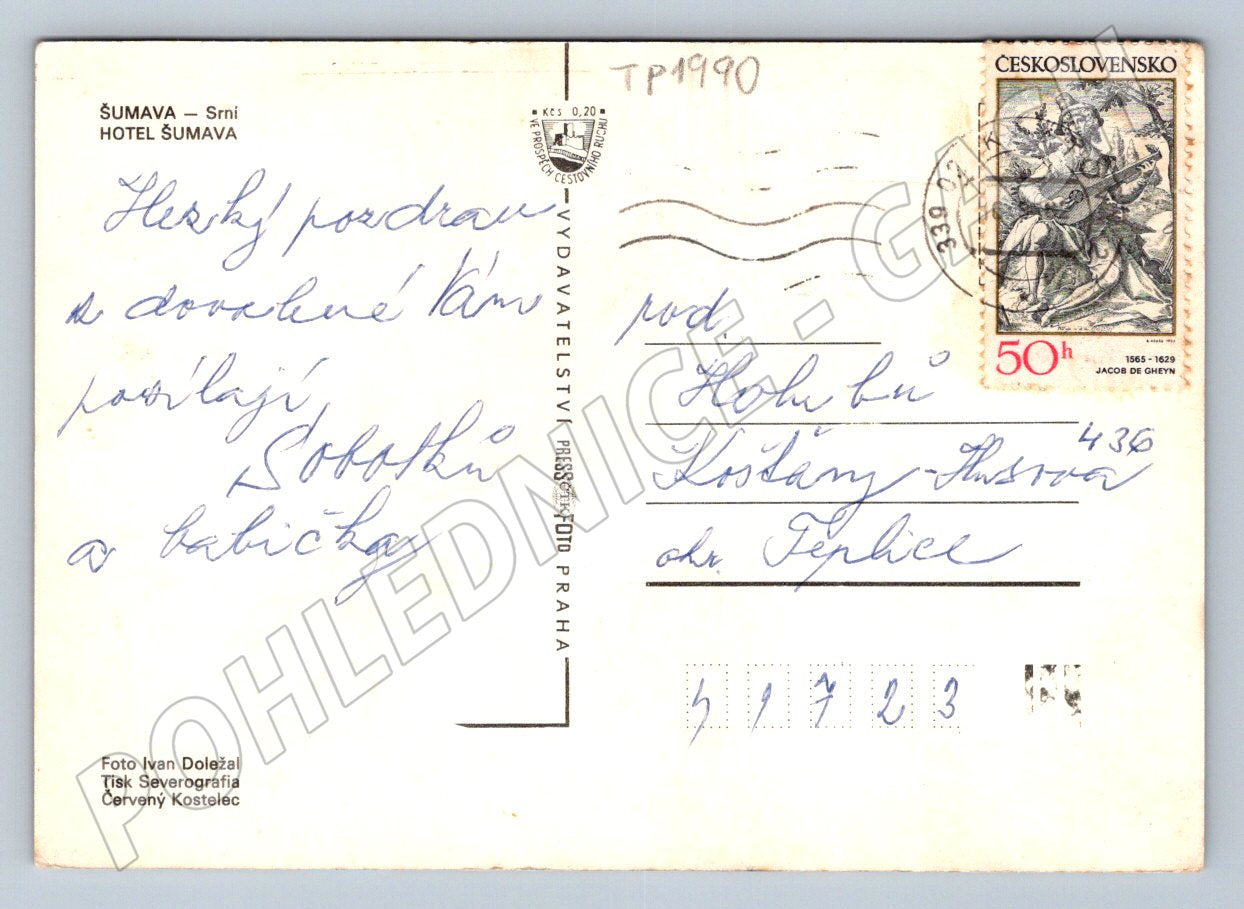 ŠUMAVA – Srní
HOTEL ŠUMAVA
Hezký pozdrav
z dovolené Vám
posílají
Sobotků
a babička
Foto Ivan Doležal
Tisk Severografia
Červený Kostelec
Kčs 0,20
VE PROSPĚCH CESTOVNÍHO RUCHU
VYDAVATELSTVÍ PRESSFOTO PRAHA
ČTK
TP1990
ČESKOSLOVENSKO
50h
1565-1629
JACOB DE GHEYN
339 02
rod.
Holubů
Košťany-Husova 436
okr. Teplice
41723
POHLEDNICE - GACH